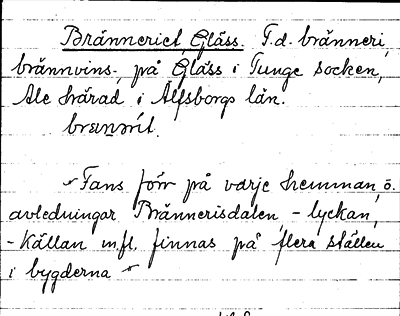 Bränneriet, Gläss. F.d. bränneri,
brännvins-, på Gläss i Tunge socken,
Ale härad i Älfsborgs län.
"Fans förr på varje hemman, o.
avledningar Brännerisdalen, -lyckan,
-Källan m.fl. finnas på flera ställen
i bygderna"